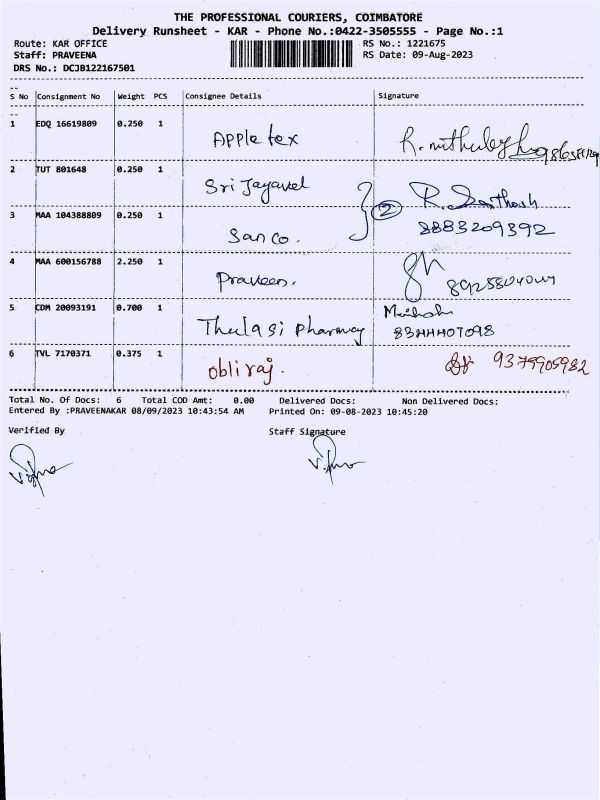 THE PROFESSIONAL COURIERS, COIMBATORE
Delivery Runsheet - KAR - Phone No.:0422-3505555 - Page No.:1
Route: KAR OFFICE RS No.: 1221675
Staff: PRAVEENA RS Date: 09-Aug-2023
DRS No.: DCJB122167501
S No Consignment No Weight PCS Consignee Details Signature
1 EDQ 16619809 0.250 1 Apple tex
2 TUT 801648 0.250 1 Sri Jayavel 2 R. Santhosh
3 MAA 104388809 0.250 1 Sanco. 8883209392
4 MAA 600156788 2.250 1 Praveen.
5 CDM 20093191 0.700 1 Thulasi pharmacy
6 TVL 7170371 0.375 1 Obliraj.
Total No. Of Docs: 6 Total COD Amt: 0.00 Delivered Docs: Non Delivered Docs:
Entered By :PRAVEENAKAR 08/09/2023 10:43:54 AM Printed On: 09-08-2023 10:45:20
Verified By Staff Signature